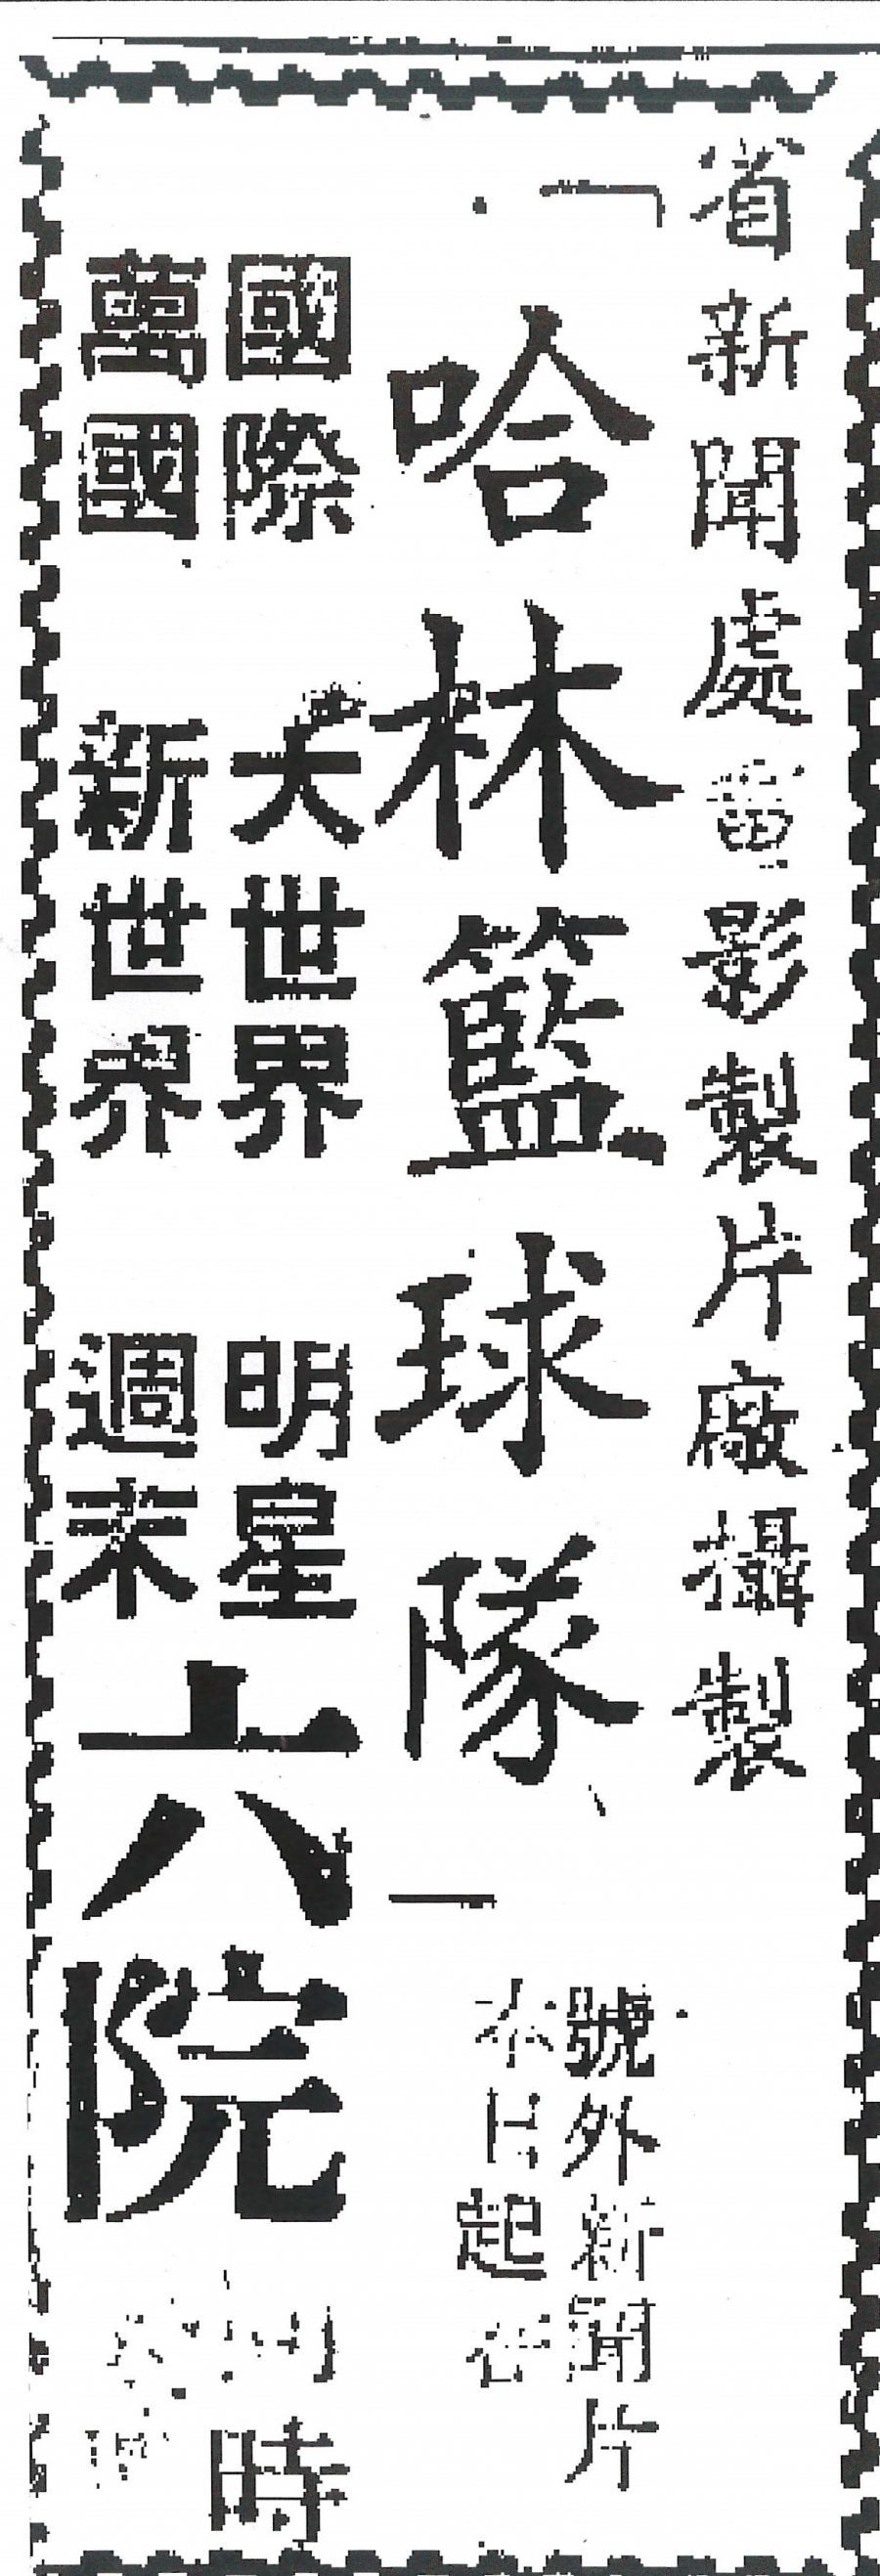 省新聞處電影製片廠攝製
「哈林籃球隊」
號外新聞片
不日起在
國際
萬國
大世界
新世界
明星
週末
六院
同時